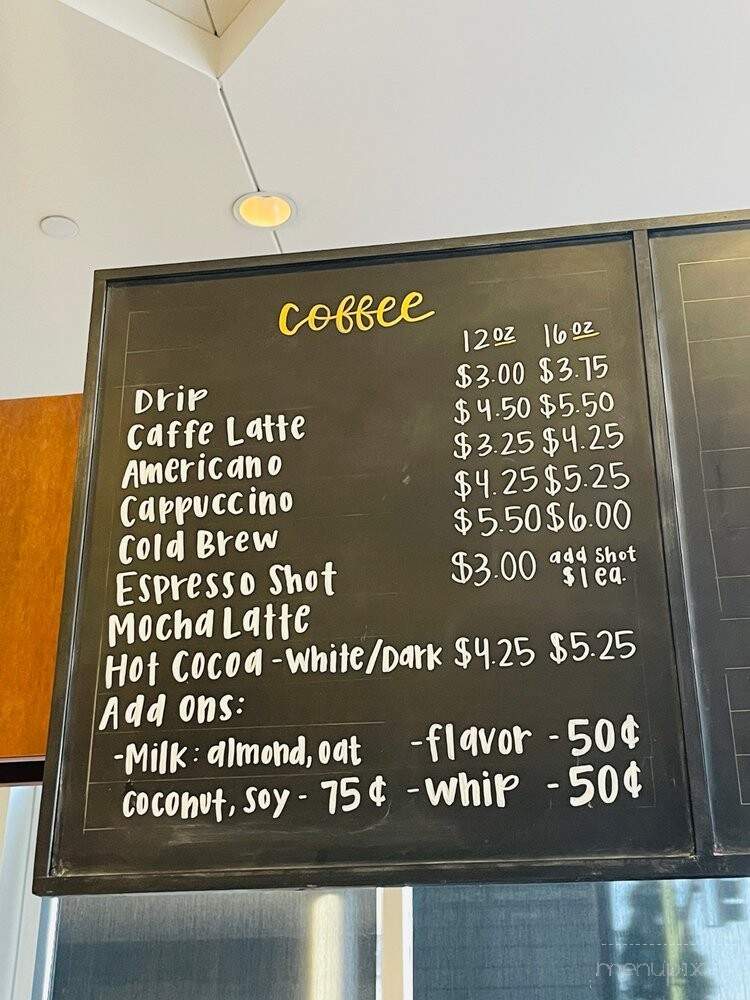 coffee
12 oz 16 oz
Drip $3.00 $3.75
Caffe Latte $4.50 $5.50
Americano $3.25 $4.25
Cappuccino $4.25 $5.25
Cold Brew $5.50 $6.00
Espresso Shot $3.00 add shot $1 ea.
Mocha Latte
Hot Cocoa - White/Dark $4.25 $5.25
Add ons:
-Milk: almond, oat -flavor - 50¢
coconut, soy - 75¢ -whip - 50¢
menupix